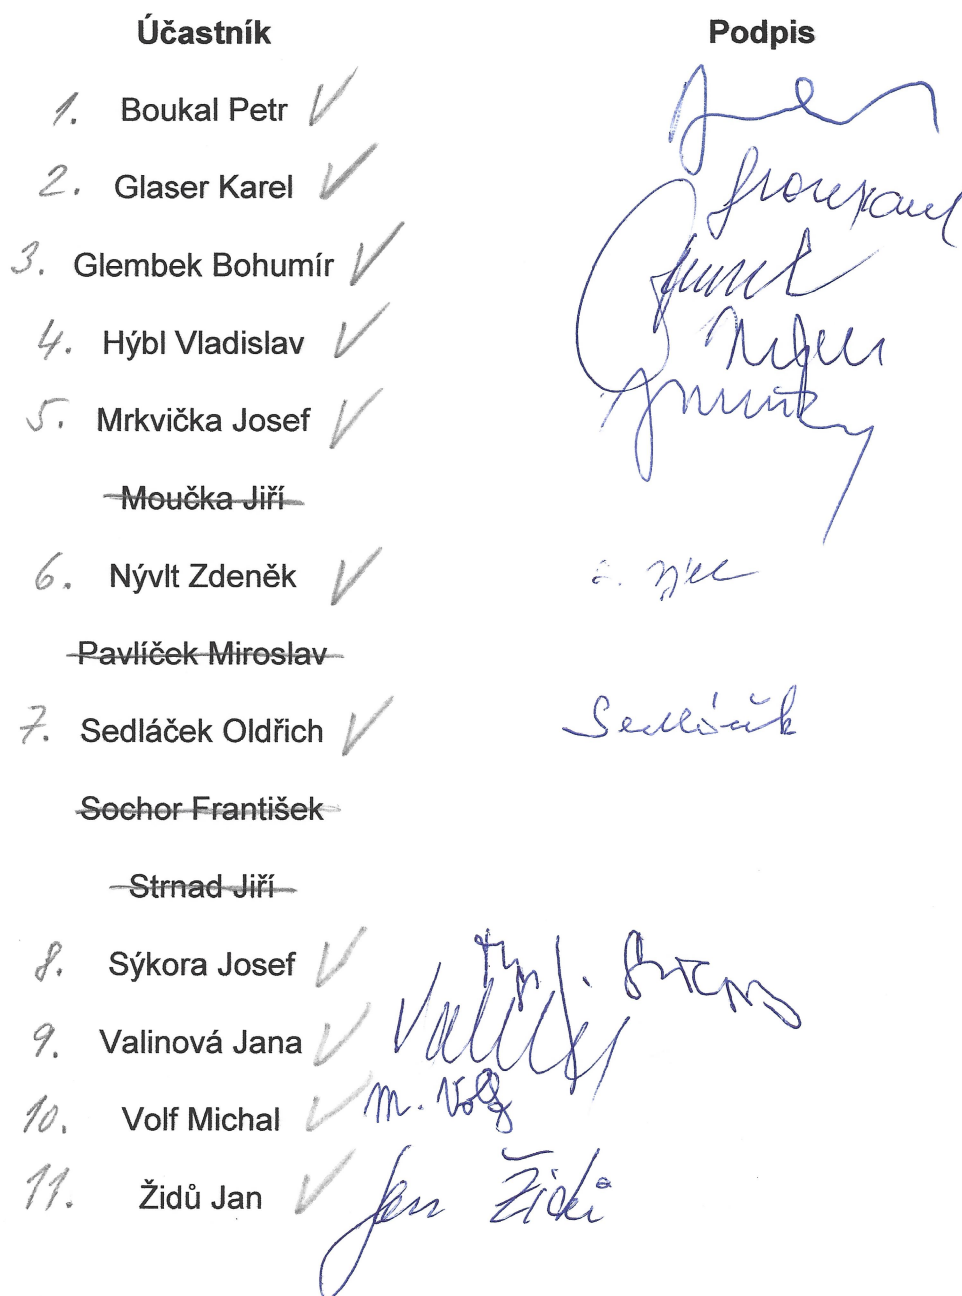 Účastník Podpis
1. Boukal Petr
2. Glaser Karel
3. Glembek Bohumír
4. Hýbl Vladislav
5. Mrkvička Josef
Moučka Jiří
6. Nývlt Zdeněk
Pavlíček Miroslav
7. Sedláček Oldřich Sedláček
Sochor František
Strnad Jiří
8. Sýkora Josef
9. Valinová Jana
10. Volf Michal M. Volf
11. Židů Jan Jan Židů